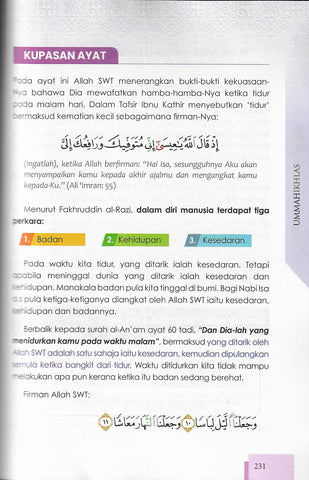 KUPASAN AYAT
Pada ayat ini Allah SWT menerangkan bukti-bukti kekuasaan-
Nya bahawa Dia mewafatkan hamba-hamba-Nya ketika tidur
pada malam hari. Dalam Tafsir Ibnu Kathir menyebutkan ‘tidur’
bermaksud kematian kecil sebagaimana firman-Nya:
إِذْ قَالَ اللَّهُ يَٰعِيسَىٰ إِنِّي مُتَوَفِّيكَ وَرَافِعُكَ إِلَيَّ
(Ingatlah), ketika Allah berfirman: “Hai Isa, sesungguhnya Aku akan
menyampaikan kamu kepada akhir ajalmu dan mengangkat kamu
kepada-Ku.” (Ali ‘Imran: 55)
Menurut Fakhruddin al-Razi, dalam diri manusia terdapat tiga
perkara:
1. Badan 2. Kehidupan 3. Kesedaran
Pada waktu kita tidur, yang ditarik ialah kesedaran. Tetapi
apabila meninggal dunia yang ditarik ialah kesedaran dan
kehidupan. Manakala badan pula kita tinggal di bumi. Bagi Nabi Isa
a.s pula ketiga-ketiganya diangkat oleh Allah SWT iaitu kesedaran,
kehidupan dan badannya.
Berbalik kepada surah al-An’am ayat 60 tadi, “Dan Dia-lah yang
menidurkan kamu pada waktu malam”, bermaksud yang ditarik oleh
Allah SWT adalah satu sahaja iaitu kesedaran, kemudian dipulangkan
semula ketika bangkit dari tidur. Waktu ditidurkan kita tidak mampu
melakukan apa pun kerana ketika itu badan sedang berehat.
Firman Allah SWT:
وَجَعَلْنَا اللَّيْلَ لِبَاسًا ١٠ وَجَعَلْنَا النَّهَارَ مَعَاشًا ١١
UMMAHIKHLAS
231